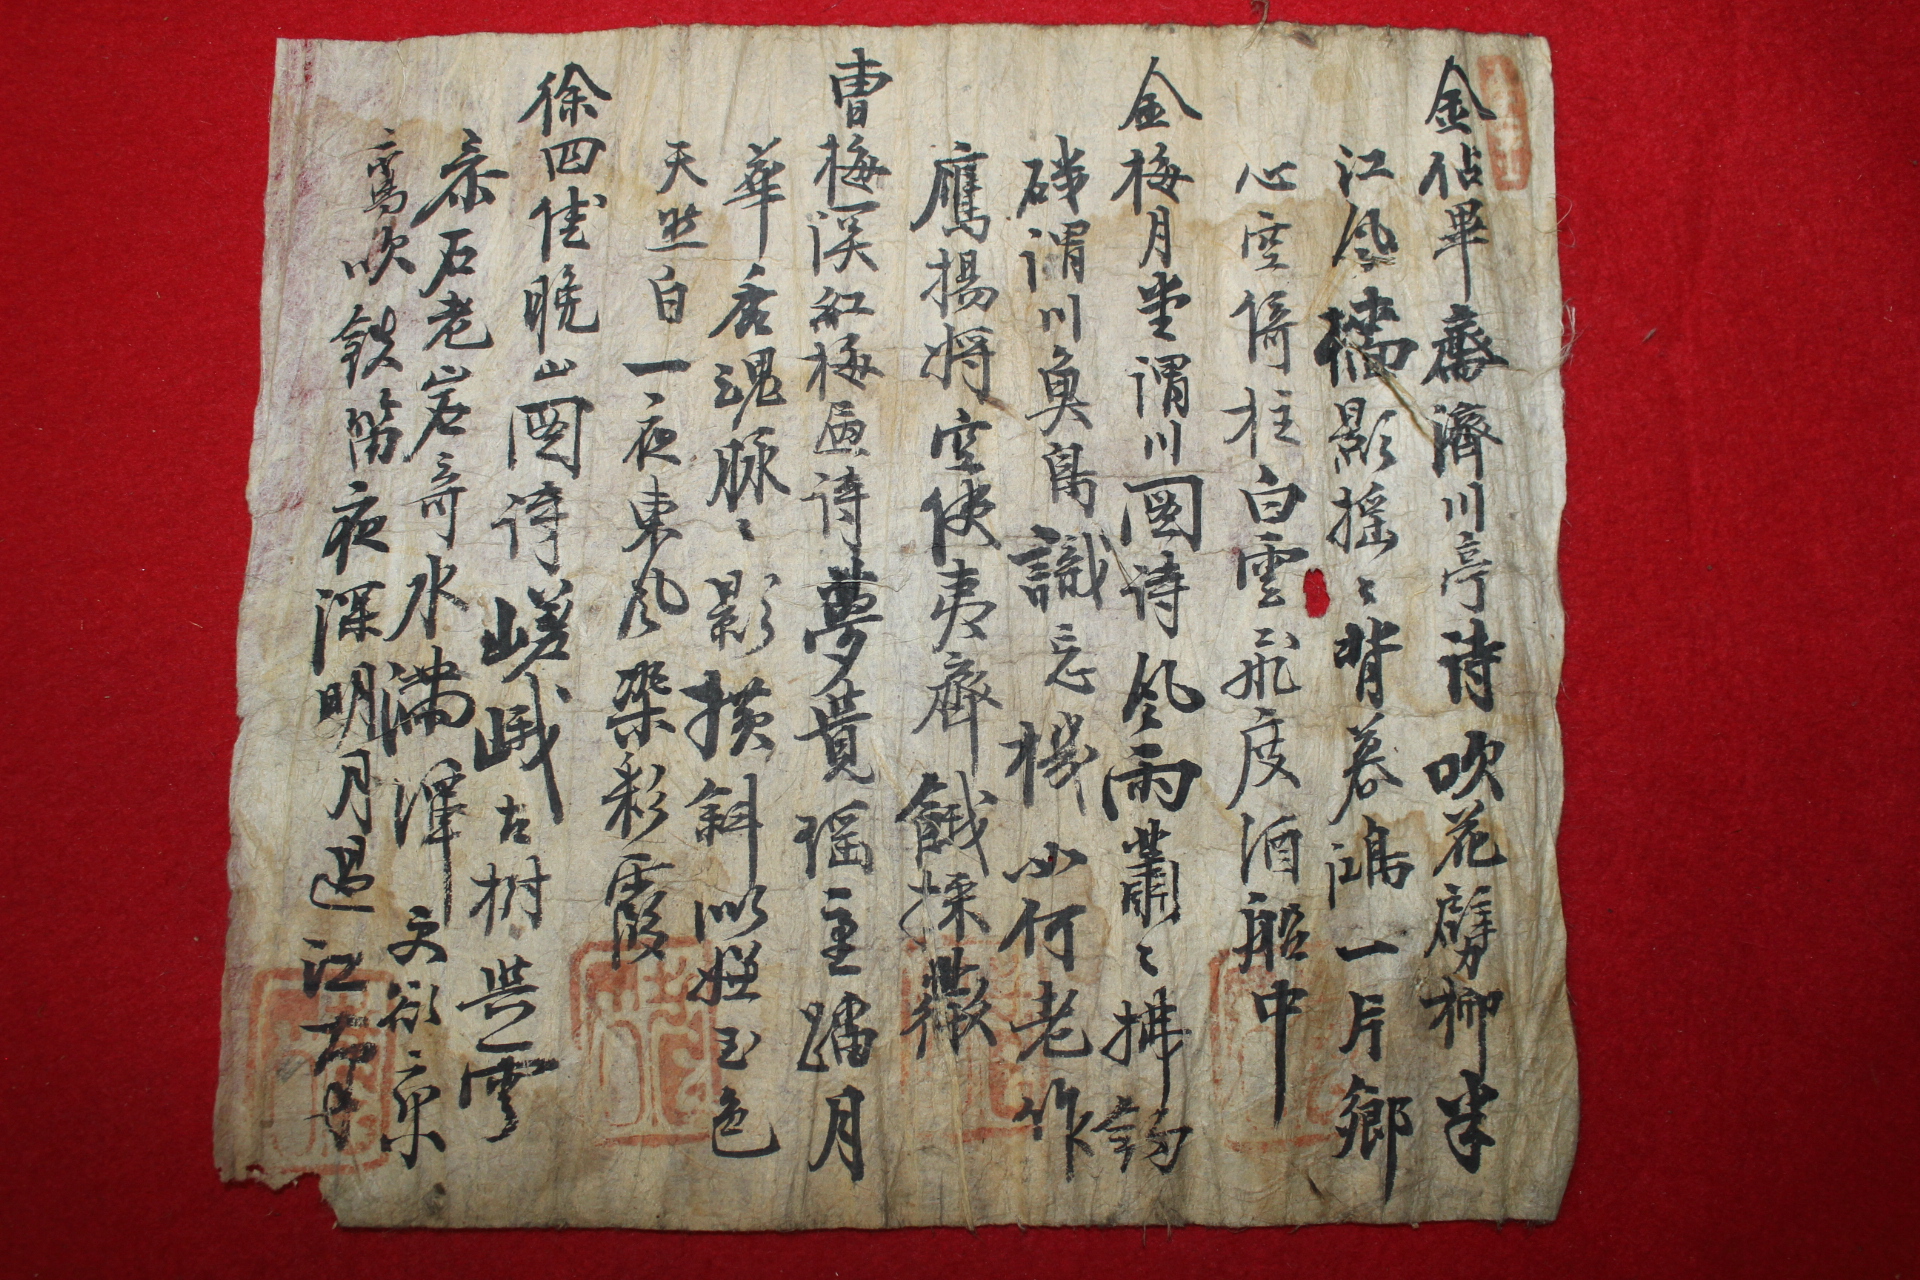 金佔畢齋濟川亭詩吹花劈柳半
江風檣影搖〻背暮鴻一片鄉
心空倚柱白雲飛度酒船中
金梅月堂謂川圖詩風雨蕭〻拂釣
磯謂川奐鳥識忘機如何老作
鷹揚將空使夷齊餓採薇
曺梅溪紅梅画詩夢覺瑤臺踏月
華香魂脉〻影橫斜似嫌玉色
天然白一夜東風染彩霞
徐四佳晩山圖詩嵯峨古樹與雲
泰石老岩奇水滿渾
吹鉄笛夜深明月過江